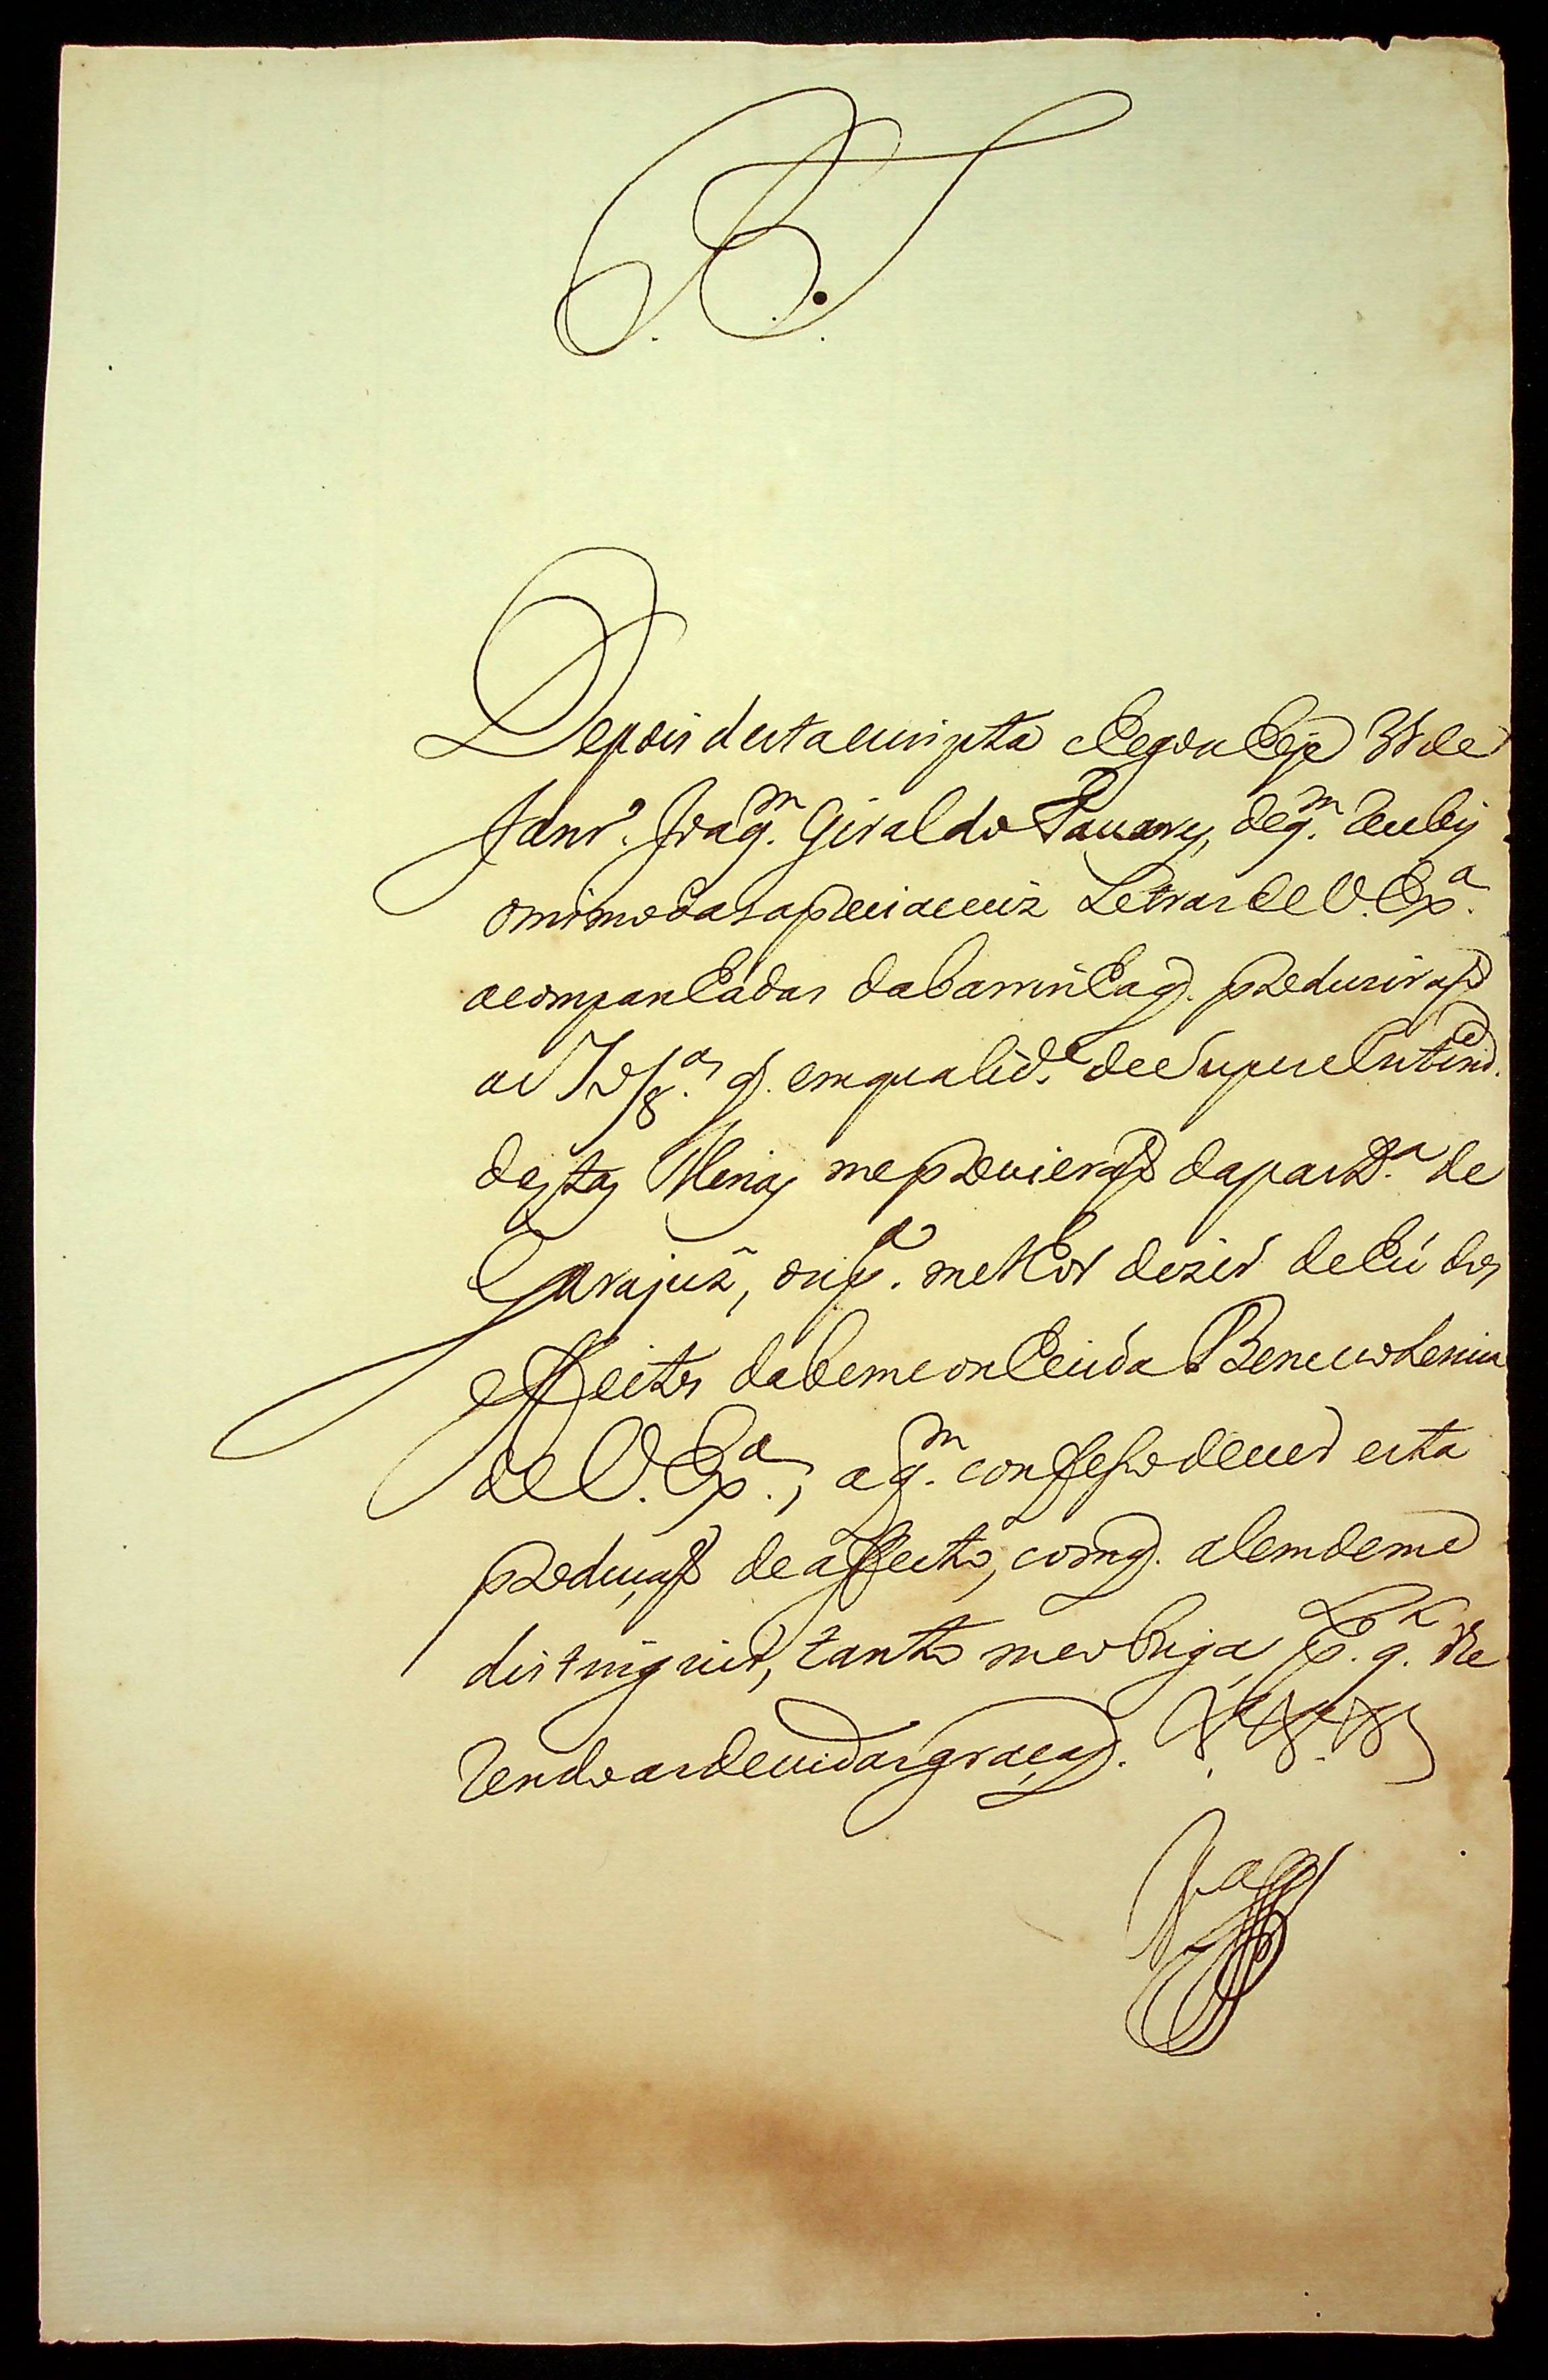 P. S.
Depois desta escripta chegou hoje 31 de
Janr.º Joaq.m Giraldo Tavares, de q.m recebi
omimo das apreciaveis Letras de V. Ex.a
acompanhadas da barrinha q. produzirão
as 8.as q. em qualid.e de Super Intend.e
destas Minas me provierão da part.a de
Carajuz, ou p.a melhor dezer dehú dos
effeitos da bem conhecida Benevolencia
de V. Ex.a, a q.m confesso dever esta
producção de affecto, com q. alem de me
distinguir, tanto me obriga, p.r q. lhe
rendo as devidas graças.